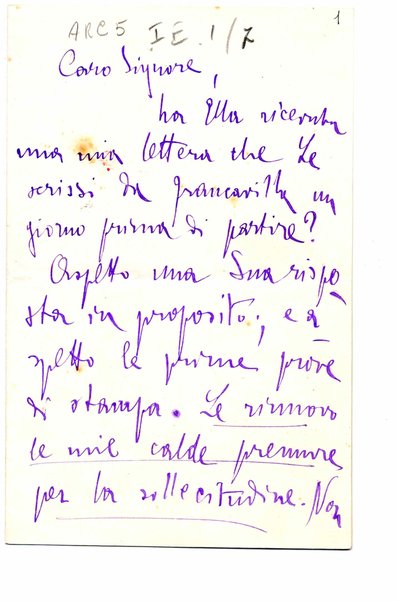 1
ARC5 IE.1/7
Caro Signore,
ha Ella ricevuta
una mia lettera che Le
scrissi da Francavilla un
giorno prima di partire?
Aspetto una Sua rispo
sta in proposito; e a
spetto le prime prove
di stampa. Le rinnovo
le mie calde premure
per la sollecitudine. Non